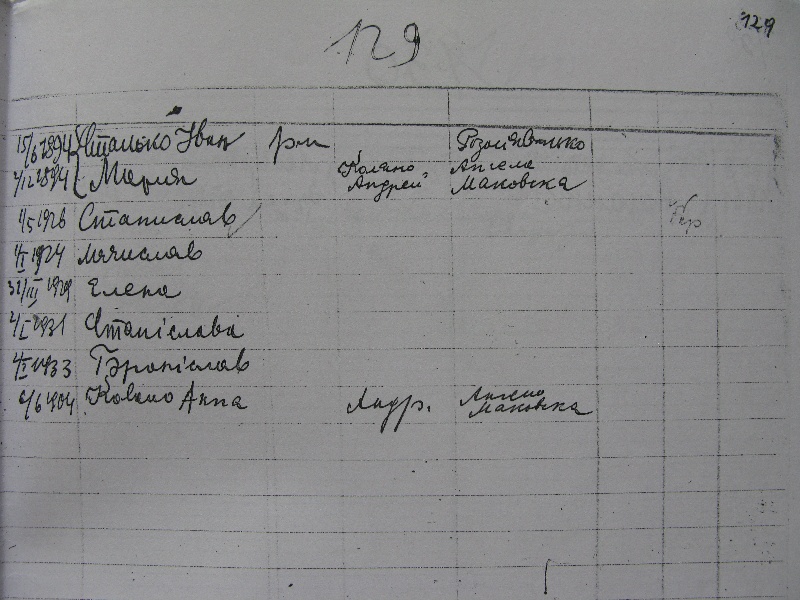 129
129
15/6 1894 Сталько Іван рп Розол Яветько
4/12 1894 Мария Коляно Андрей Ангела Маковска
1/5 1926 Станислав
4/I 1924 Мячислав
31/III 1929 Елена
2/I 1931 Станіслава
4/I 1933 Броніслав
6/6 1904 Коляно Анна Андр. Ангело Маковска